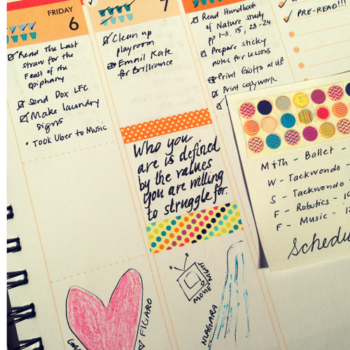 FRIDAY
6
Read The Last
Straw for the
Feast of the
Epiphany
Send Box LFC
Make laundry
signs
• Took Uber to Music
7
Clean up
playroom
Email Kate
for Brilliance
Who you
are is defined
by the values
you are willing
to struggle for.
Read Handbook
of Nature Study
pp 1-8, 15, 23-24
Prepare sticky
notes for lessons
Print Giotto
Print copywork
PRE-READ!!!
M+Th - Ballet -
W - Taekwondo
S - Taekwondo
F - Robotics -
F - Music -
Schedu
FIGARO
MOVIE NIGHT
NIAGARA